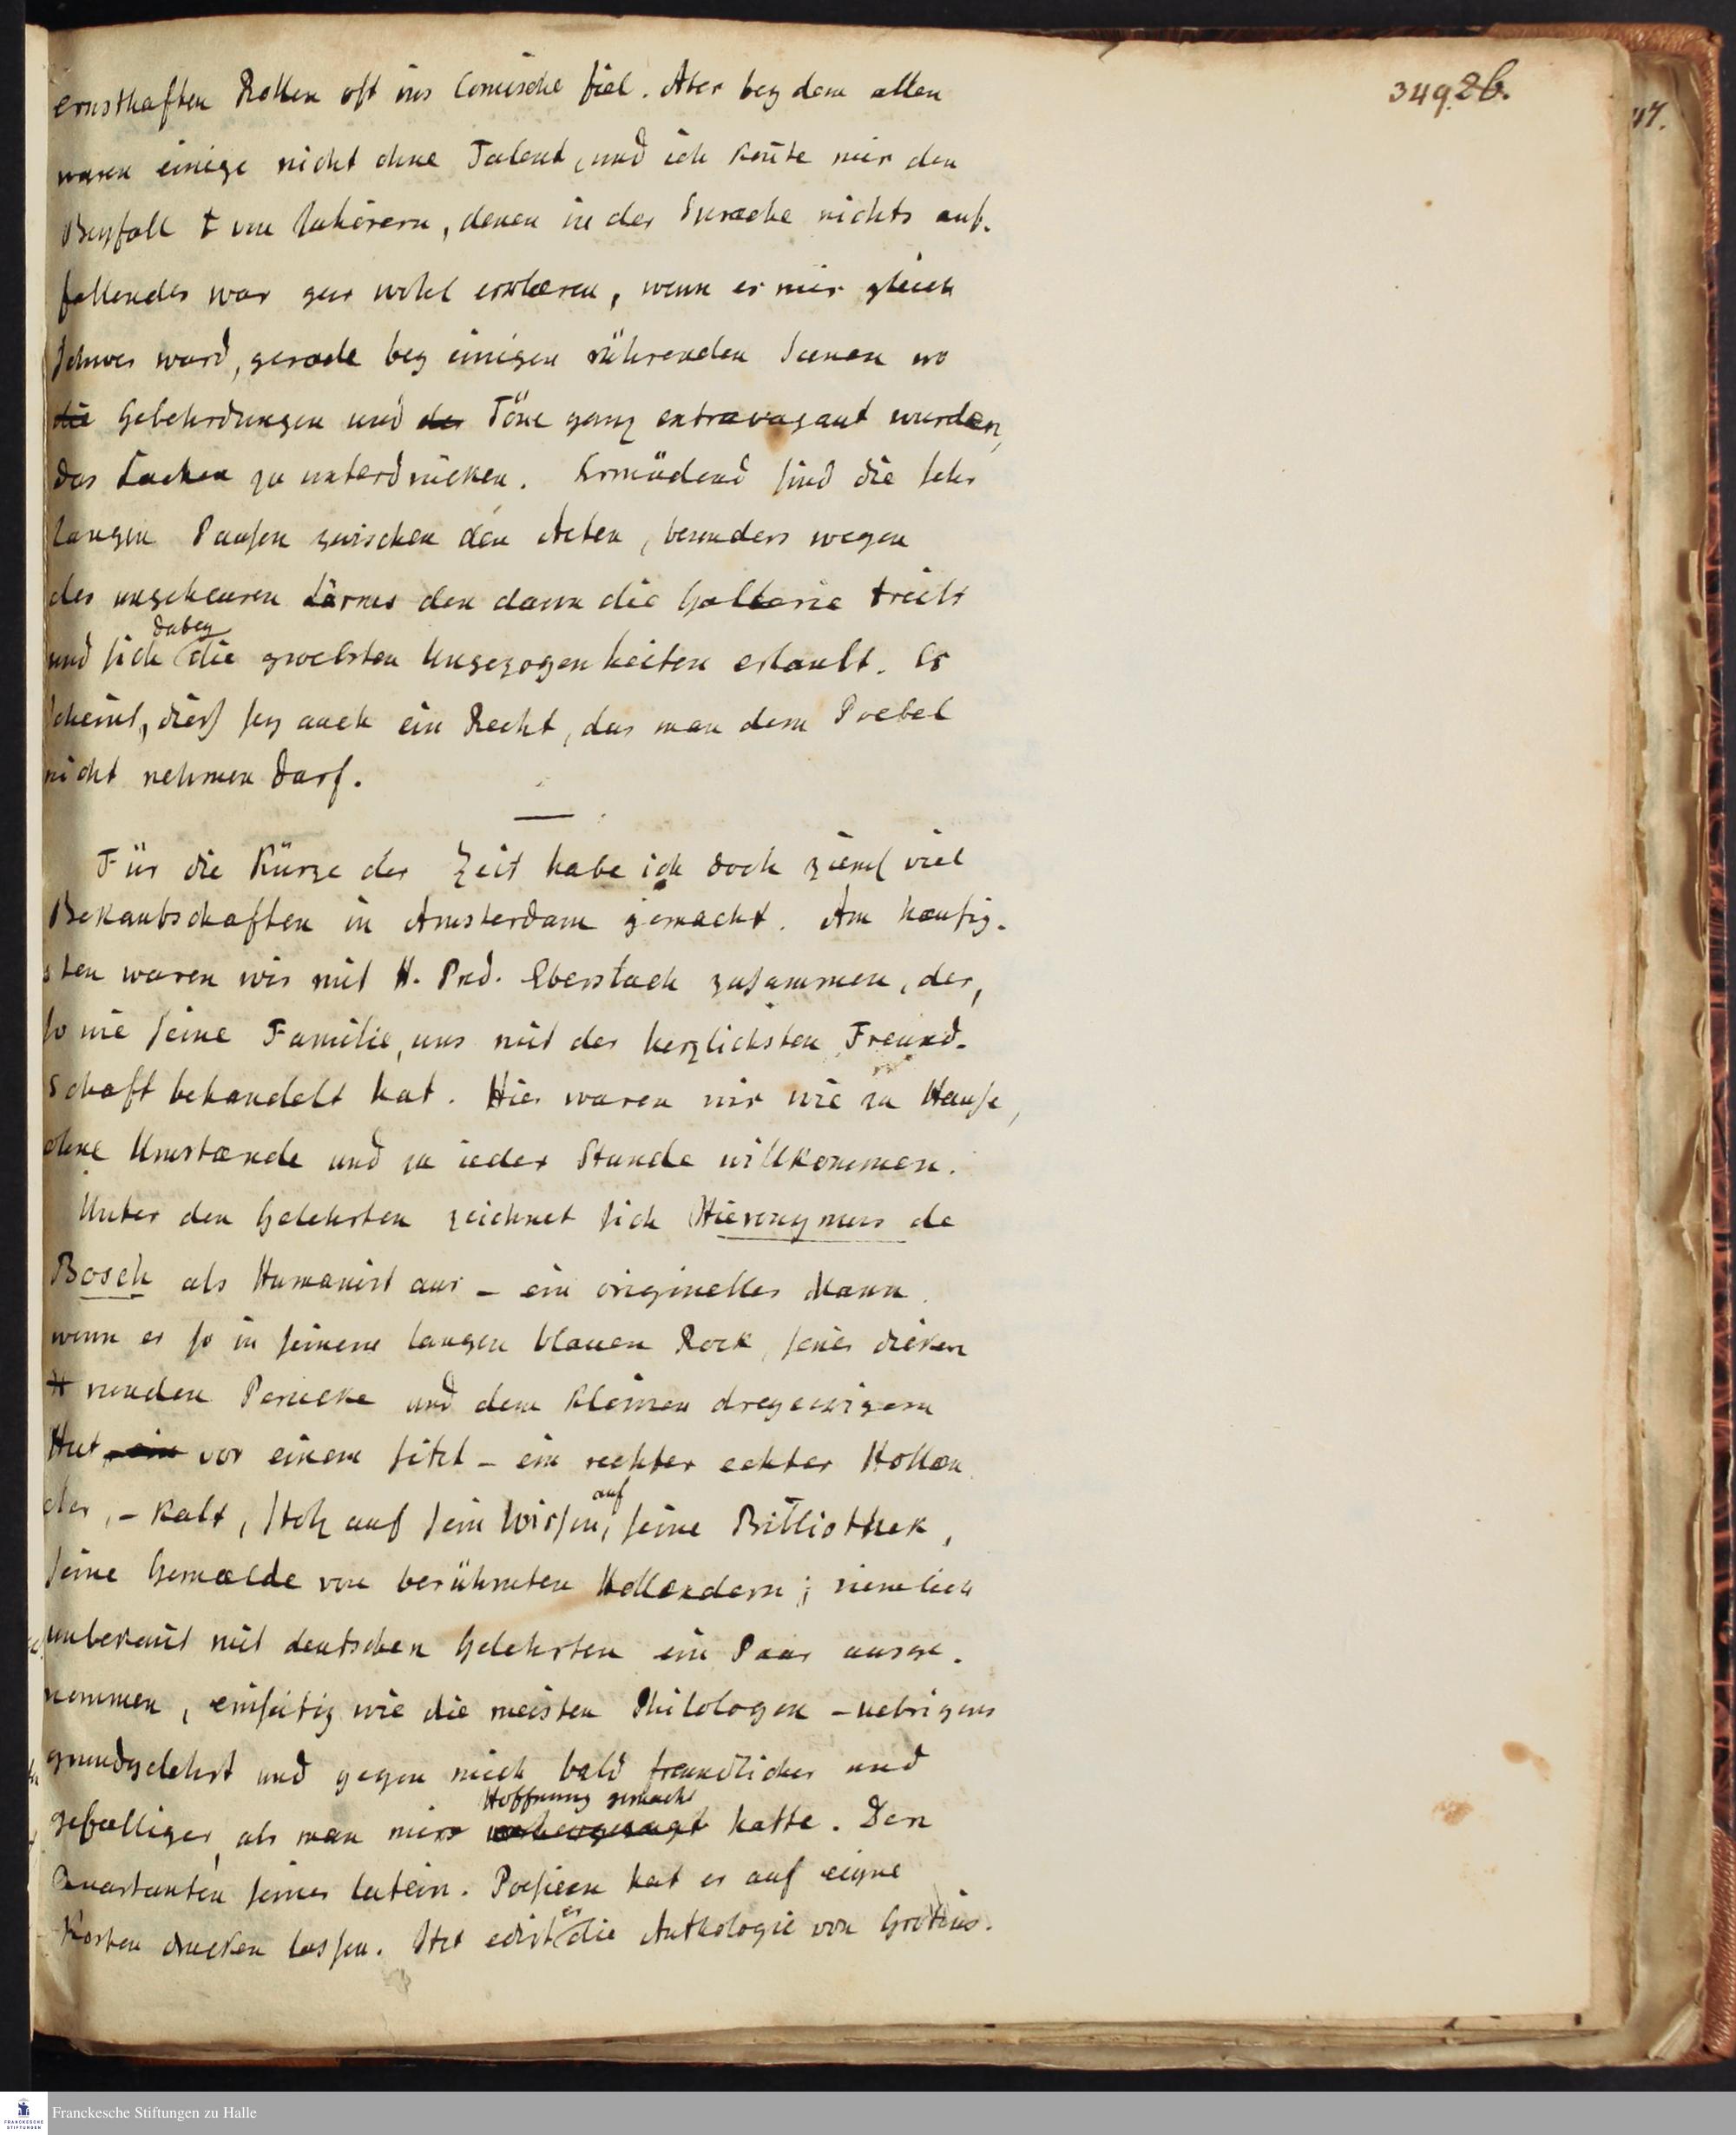 349. 26.
47.
ernsthaften Rollen oft ins Comische fiel. Aber bey dem allen
waren einige nicht ohne Talent, und ich konte mir den
Beyfall von Zuhörern, denen in der Sprache nichts auf-
fallendes war gar wohl erklæren, wenn es mir gleich
schwer ward, gerade bey einigen rührenden Scenen wo
die Gebehrdungen und der Töne ganz extravagant wurden,
das Lachen zu unterdrücken. Ermüdend sind die sehr
langen Pausen zwischen den Acten, besonders wegen
des ungeheuren Lärms den dann die Gallerie treibt
dabey
und sich die groebsten Ungezogenheiten erlaubt. Es
scheint, diess sey auch ein Recht, das man dem Poebel
nicht nehmen darf.
Für die Kürze der Zeit habe ich doch zieml viel
Bekantschaften in Amsterdam gemacht. Am hæufig-
sten waren wir mit H. Pred. Ebersbach zusammen, der,
so wie seine Familie, uns mit der herzlichsten Freund-
schaft behandelt hat. Hier waren wir wie zu Hause,
ohne Umstænde und zu ieder Stunde willkommen.
Unter den Gelehrten zeichnet sich Hieronymus de
Bosch als Humanist aus - ein origineller Mann
wenn er so in seinem langen blauen Rock, seiner dicken
runden Perucke und dem kleinen dreyeckigem
Hut, ein vor einem sitzt - ein rechter echter Hollæn
der, - kalt, stolz auf sein Wissen, seine Bibliothek,
auf
seine Gemælde von berühmten Hollændern; ziemlich
unbekant mit deutschen Gelehrten ein Paar ausge-
nommen, einseitig wie die meisten Philologen - uebrigens
grundgelehrt und gegen mich bald freundlicher und
Hoffnung gemacht
gefælliger, als man mir vorhergesagt hatte. Den
Quartanten seiner latein. Poesieen hat er auf eigne
er
Kosten drucken lassen. Itzt edirt die Anthologie von Grotius.
Franckesche Stiftungen zu Halle
FRANCKESCHE
STIFTUNGEN